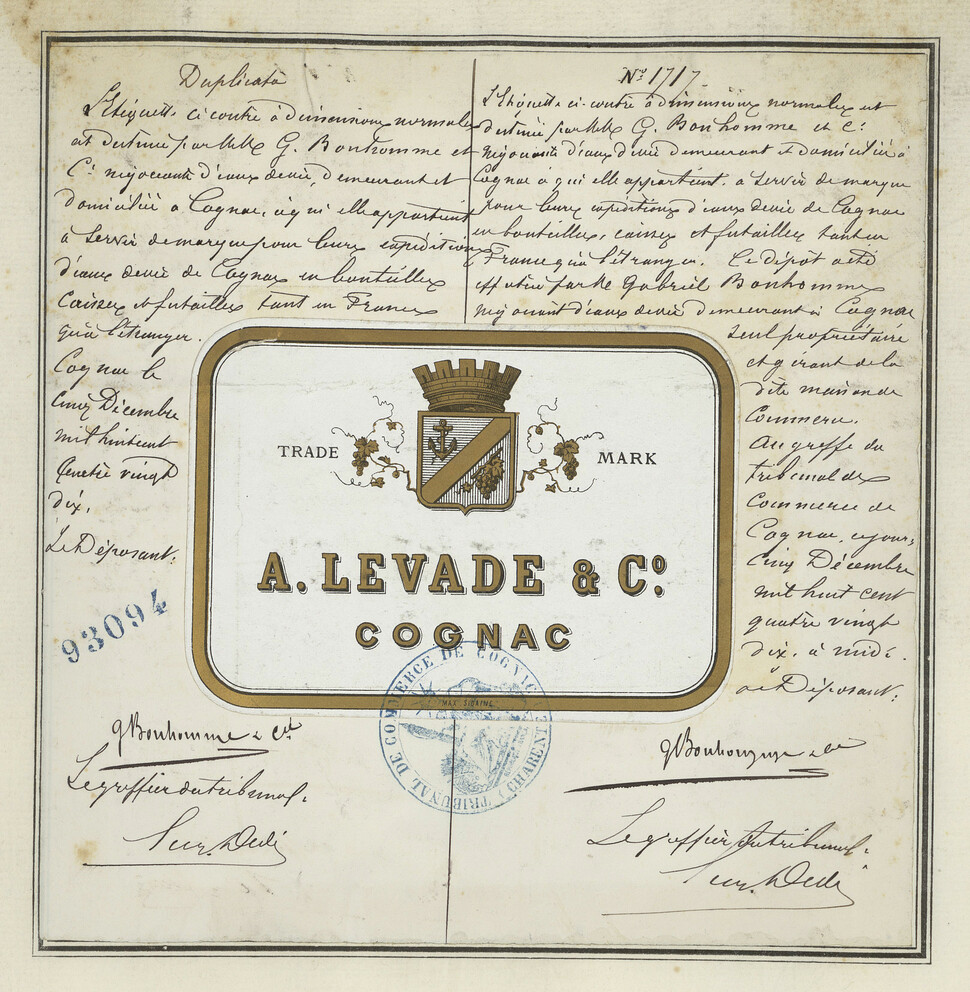 Duplicata
L'Etiquette ci contre à dimensions normales
est destinée par MM G. Bonhomme et
Cie négociants d'eaux de vie, demeurant et
domiciliés à Cognac, à qui elle appartient
à servir de marque pour leurs expéditions
d'eaux de vie de Cognac en bouteilles
caisses et futailles tant en France
qu'à l'étranger.
Cognac le
cinq Décembre
mil huit cent
quatre vingt
dix.
Le Déposant.
93094
GBonhomme & Cie
Le greffier du tribunal.
No 1717
L'Etiquette ci-contre à dimensions normales est
destinée par MM G. Bonhomme et Cie
négociants d'eaux de vie demeurant et domiciliés à
Cognac à qui elle appartient. à servir de marque
pour leurs expéditions d'eaux de vie de Cognac
en bouteilles, caisses et futailles tant en
France qu'à l'étranger. Ce dépôt a été
effectué par M Gabriel Bonhomme
négociant d'eaux de vie demeurant à Cognac
seul propriétaire
et gérant de la
dite maison de
Commerce.
Au greffe du
tribunal de
Commerce de
Cognac, ce jour,
cinq Décembre
mil huit cent
quatre vingt
dix. à midi.
Le Déposant.
GBonhomme & Cie
Le greffier du tribunal.
TRADE MARK
A. LEVADE & Co.
COGNAC
TRIBUNAL DE COMMERCE DE COGNAC
(CHARENTE)